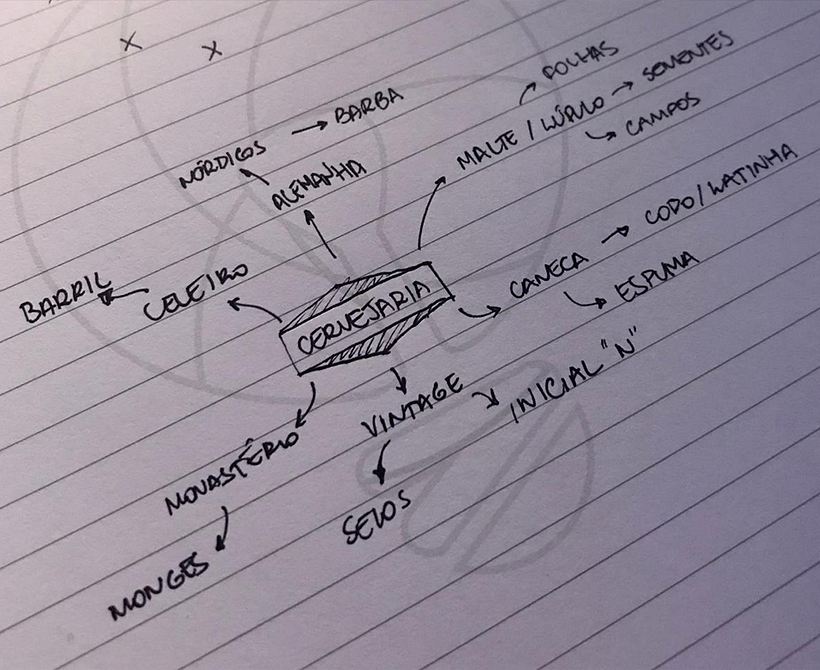 FOLHAS
NÓRDICOS → BARBA
MALTE / LÚPULO → SEMENTES
CAMPOS
ALEMANHA
BARRIL
CELEIRO
CERVEJARIA
CANECA → COPO/LATINHA
ESPUMA
VINTAGE
INICIAL "N"
MONASTÉRIO
SELOS
MONGES